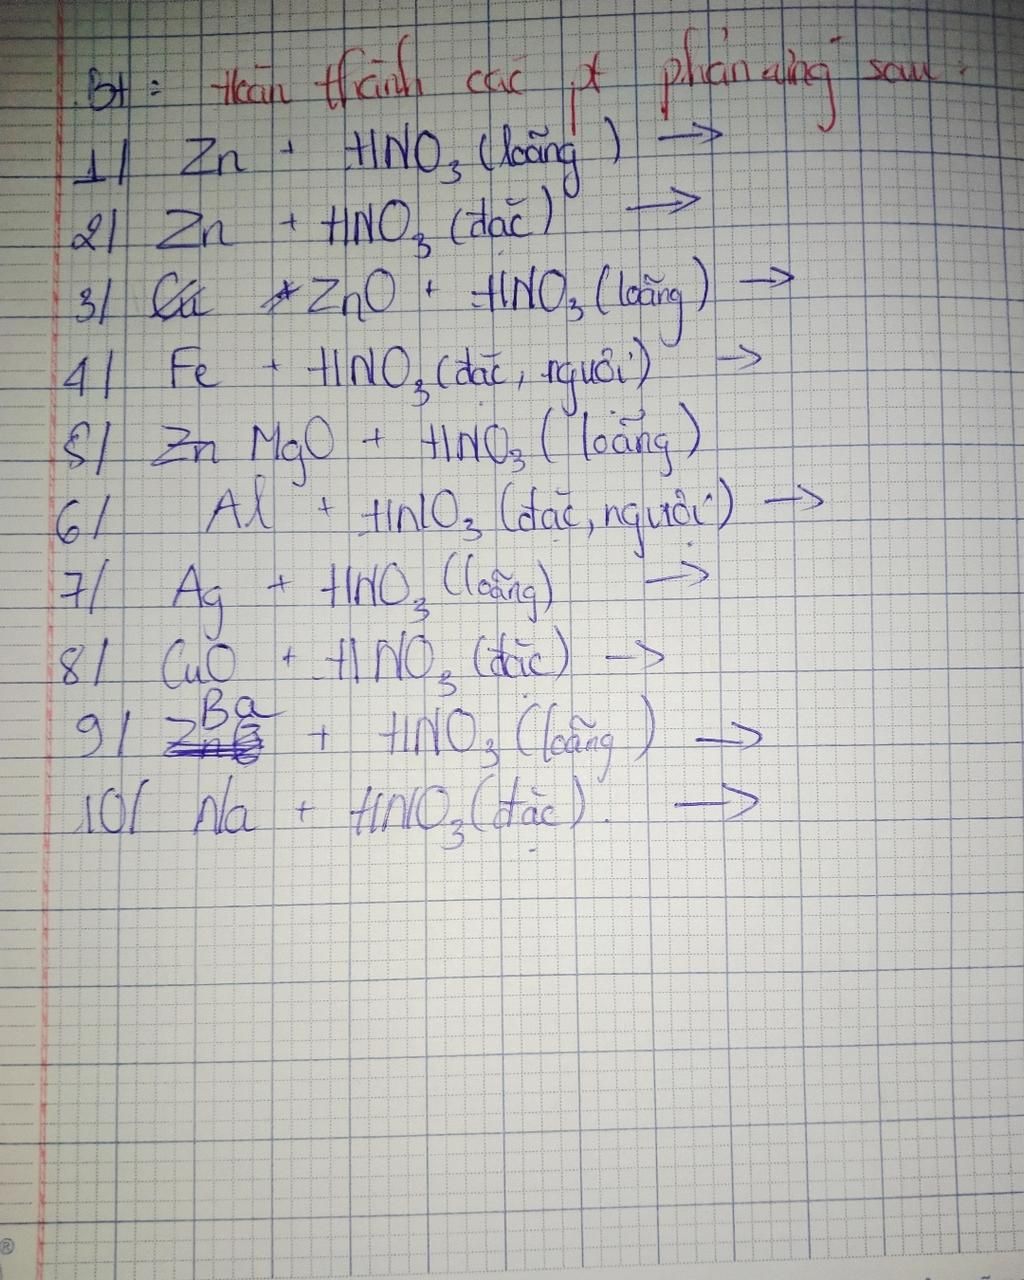 Bt: Hoàn thành các pt phản ứng sau:
1/ Zn + HNO3 (loãng) →
2/ Zn + HNO3 (đặc) →
3/ ZnO + HNO3 (loãng) →
4/ Fe + HNO3 (đặc, nguội) →
5/ MgO + HNO3 (loãng)
6/ Al + HNO3 (đặc, nguội) →
7/ Ag + HNO3 (loãng) →
8/ CuO + HNO3 (đặc) →
9/ Ba + HNO3 (loãng) →
10/ Na + HNO3 (đặc). →
®